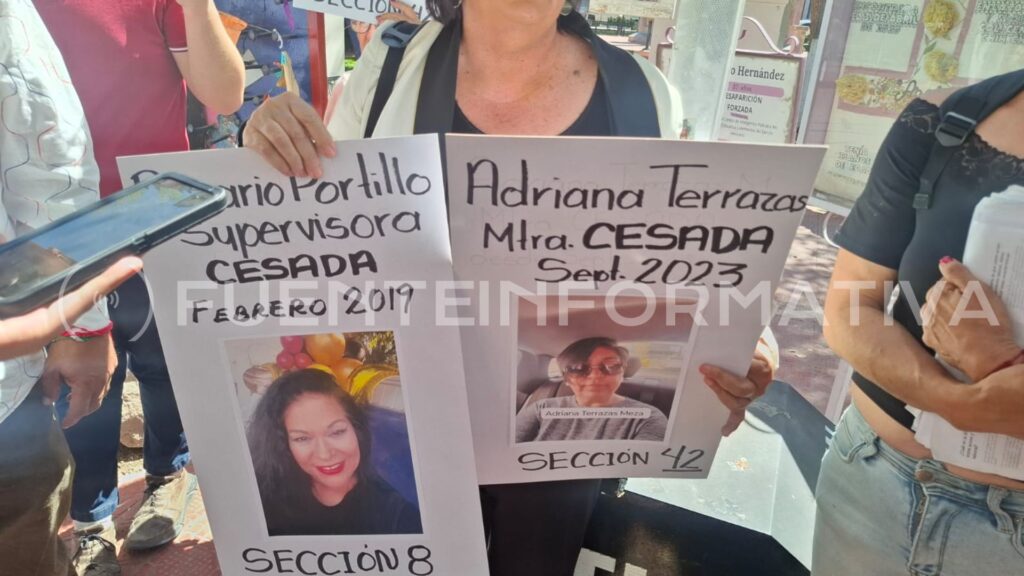 SECCIÓN
Rosario Portillo
Supervisora
CESADA
FEBRERO 2019
SECCIÓN 8
Adriana Terrazas
Mtra. CESADA
Sept. 2023
Adriana Terrazas Meza
SECCIÓN 42
o Hernández
ESAPARICIÓN
FORZADA
FUENTEINFORMATIVA